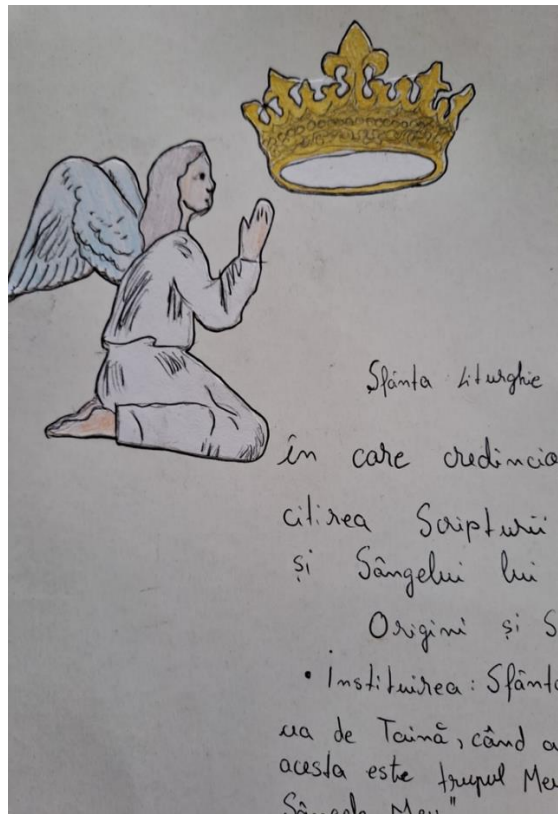 Sfânta Liturghie
în care credincio
citirea Scripturii
și Sângelui lui
Origini și S
• Instituirea: Sfânta
ua de Taină, când a
acesta este trupul Meu
Sângele Meu"